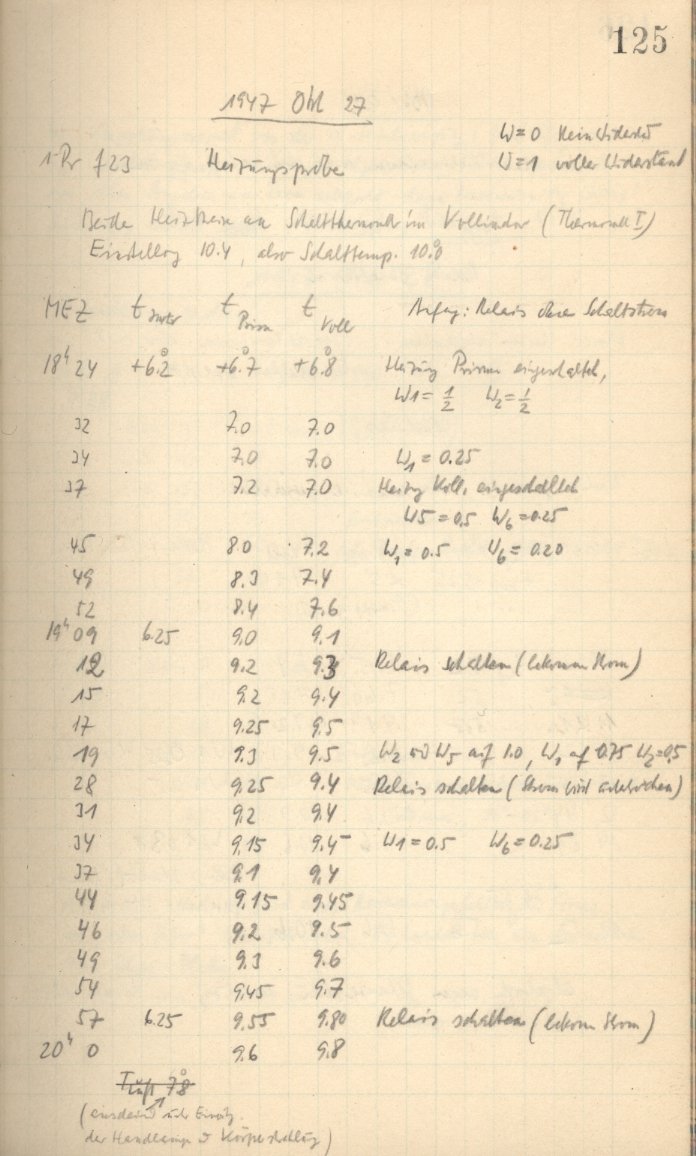 125
1947 Okt 27
W=0 kein Widerst
1-Pr f23 Heizungsprobe W=1 voller Widerstand
Beide Heizkreise an Schaltthermometer im Vollzylinder (Thermomet I)
Einstellg 10.4, also Schalttemp. 10.0
MEZ t t Prism t Voll Anfang: Relais ohne Schaltstrom
18h 24 +6.2 +6.7 +6.8 Heizung Prisma eingeschaltet,
W1 = 1/2 W2 = 1/2
32 7.0 7.0
34 7.0 7.0 W1 = 0.25
37 7.2 7.0 Heizg Voll. eingeschaltet
W5 = 0.5 W6 = 0.25
45 8.0 7.2 W1 = 0.5 W6 = 0.20
49 8.3 7.4
52 8.4 7.6
19h 09 6.25 9.0 9.1
12 9.2 9.3 Relais schalten (bekommen Strom)
15 9.2 9.4
17 9.25 9.5
19 9.3 9.5 W2 und W5 auf 1.0, W1 auf 0.75
28 9.25 9.4 Relais schalten (Strom wird unterbrochen)
31 9.2 9.4
34 9.15 9.4 W1 = 0.5 W6 = 0.25
37 9.1 9.4
44 9.15 9.45
46 9.2 9.5
49 9.3 9.6
54 9.45 9.7
57 6.25 9.55 9.80 Relais schalten (bekomm Strom)
20h 0 9.6 9.8
TLuft 7.8
der Handlampe u Körperstrahlung)